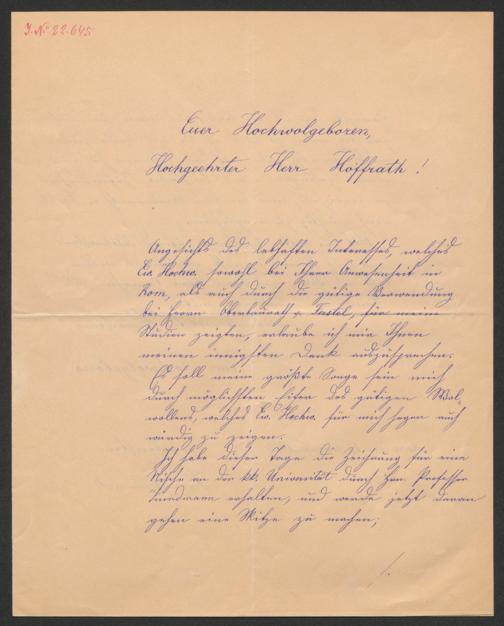 J. N. 22.645
Euer Hochwolgeboren,
Hochgeehrter Herr Hoffrath!
Angesichts des lebhaften Interesses, welches
Ew. Hochw. sowohl bei Ihrer Anwesenheit in
Rom, als auch durch die gütige Verwendung
bei Herrn Oberbaurath v. Hastel, für meine
Studien zeigten, erlaube ich mir Ihnen
meinen innigsten Dank auszusprechen.
Es soll meine größte Sorge sein mich
durch möglichsten Eifer des gütigen Wol-
wollens, welches Ew. Hochw. für mich hegen auch
würdig zu zeigen.
Ich habe dieser Tage die Zeichnung für eine
Nische an der kk. Universität durch Hrn. Professor
erhalten, und werde jetzt daran
gehen eine Skitze zu machen;
./.